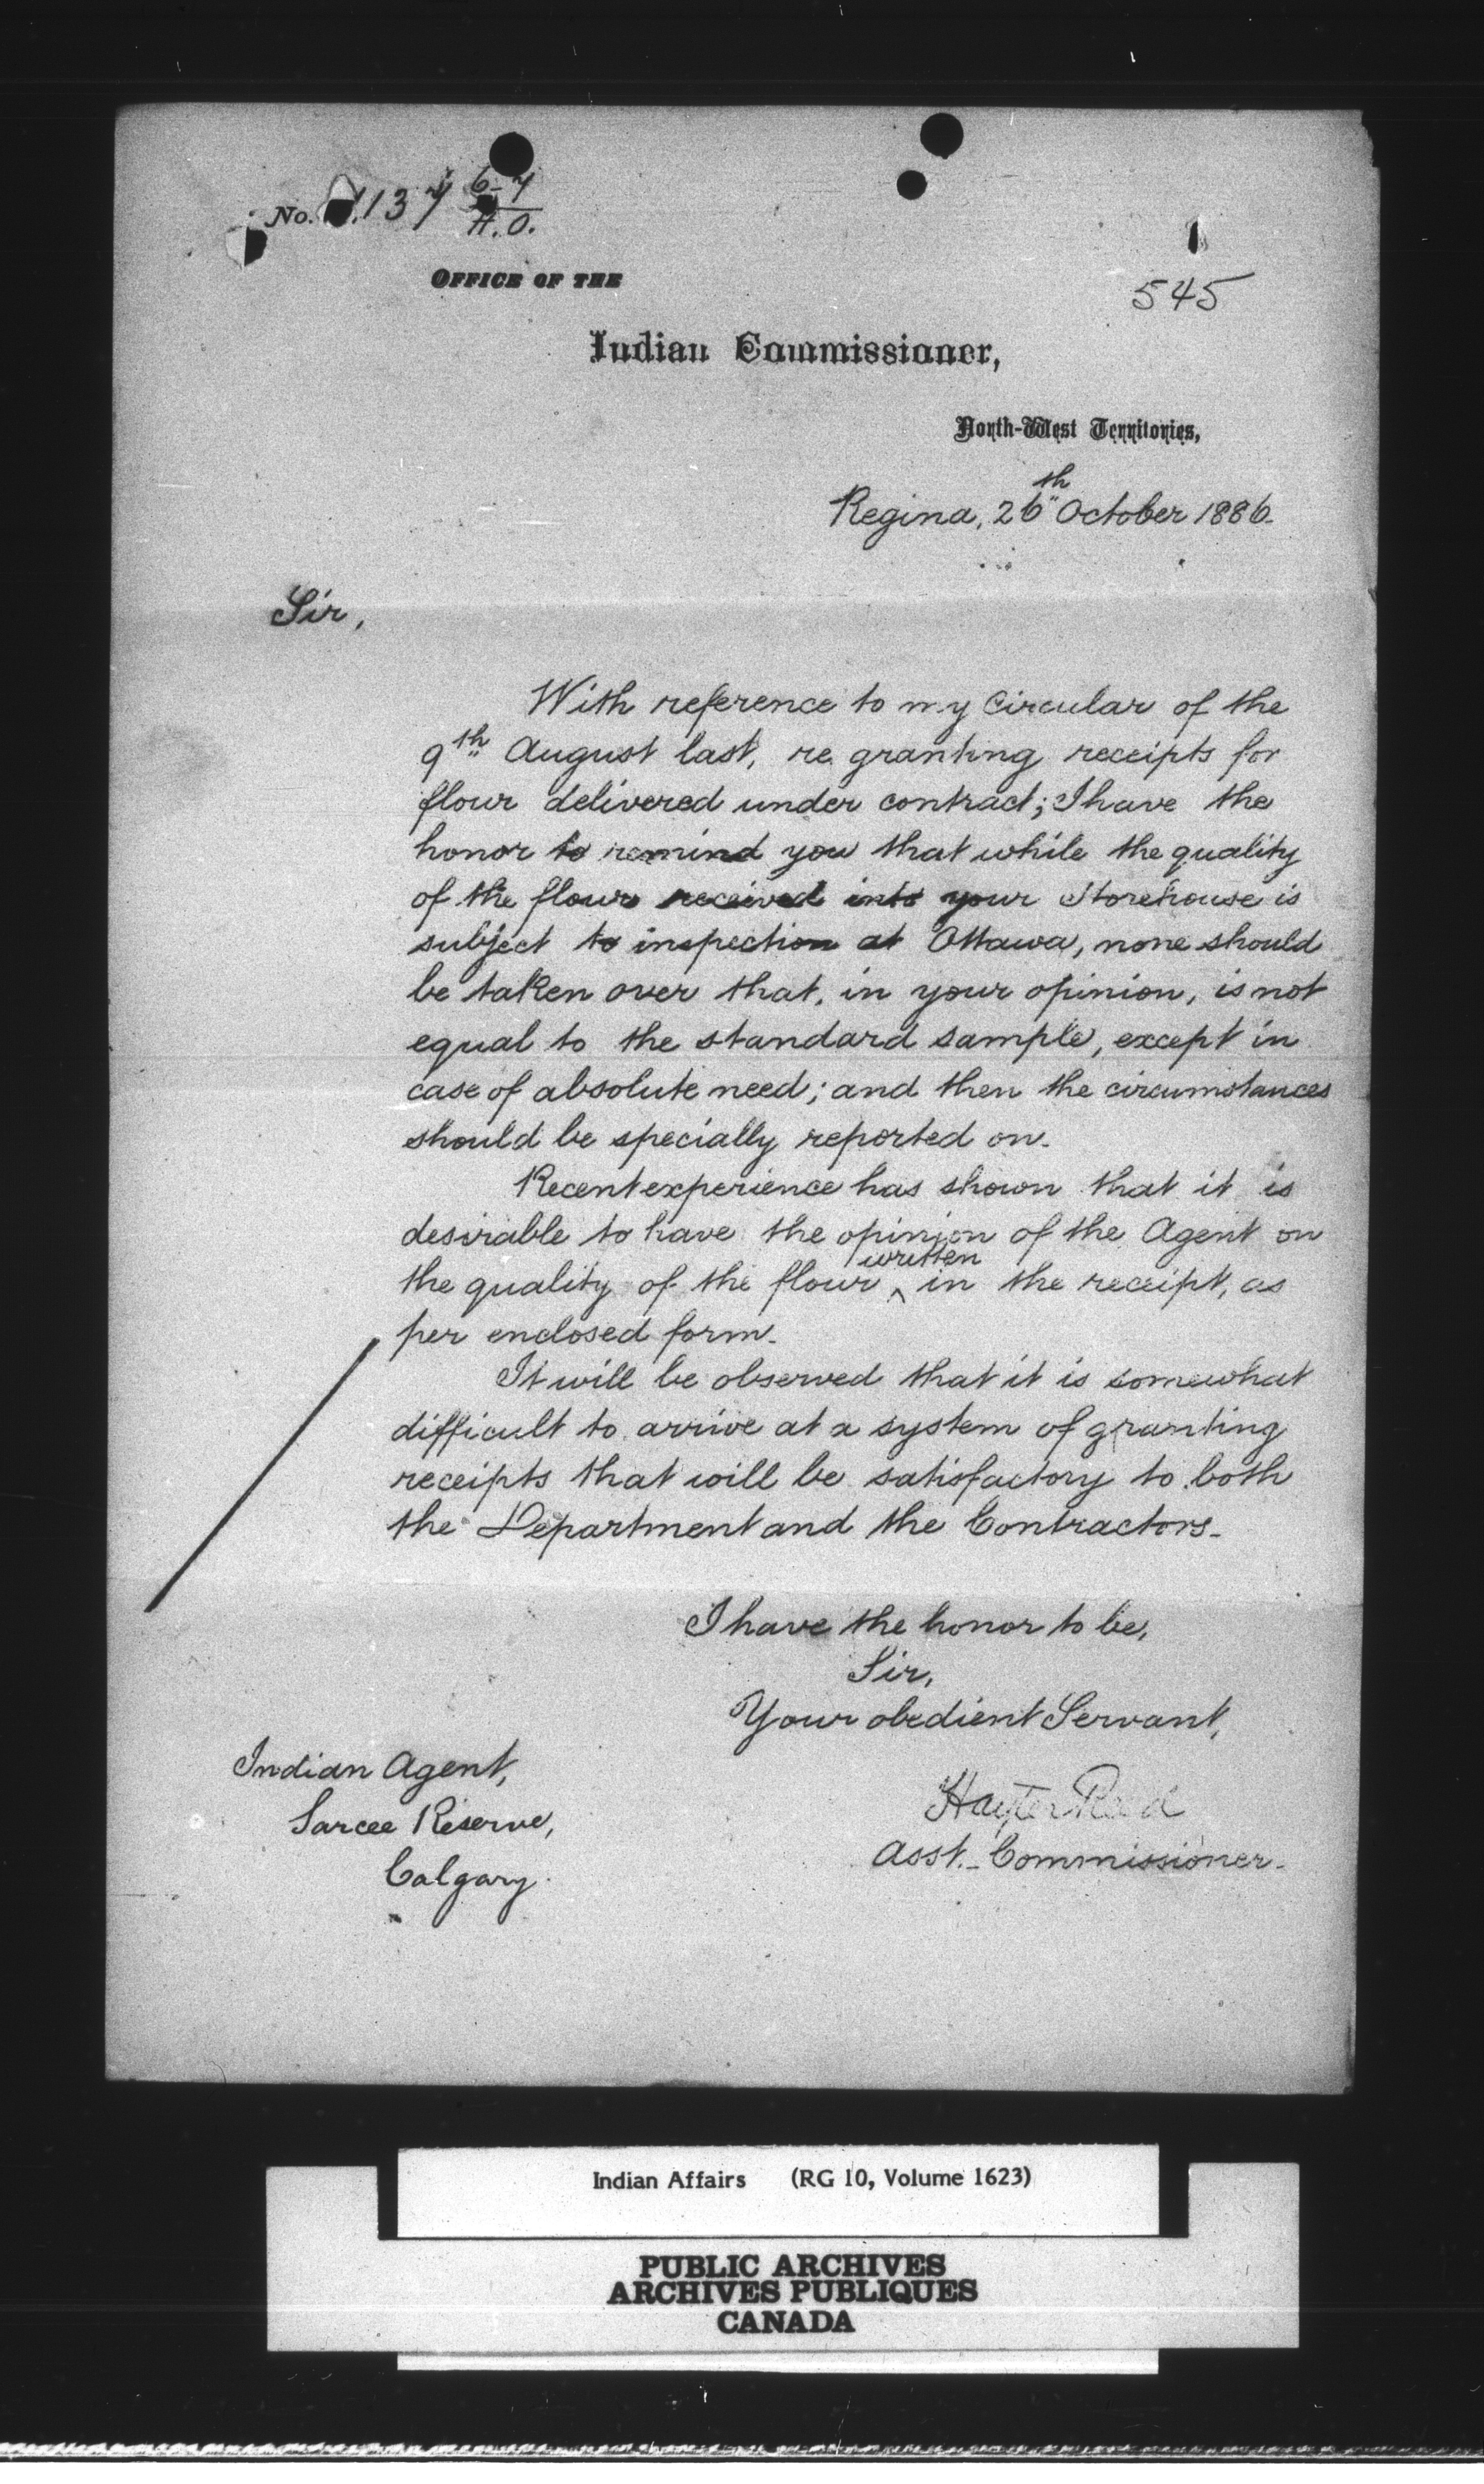 No. 137 6-7
H.O.
OFFICE OF THE
545
Indian Commissioner,
North-West Territories,
Regina, 26th October 1886.
Sir,
With reference to my Circular of the
9th August last, re granting receipts for
flour delivered under contract; I have the
honor to remind you that while the quality
of the flour received into your Storehouse is
subject to inspection at Ottawa, none should
be taken over that, in your opinion, is not
equal to the standard sample, except in
case of absolute need; and then the circumstances
should be specially reported on.
Recent experience has shown that it is
desirable to have the opinion of the Agent on
the quality of the flour ^ written in the receipt, as
per enclosed form.
It will be observed that it is somewhat
difficult to arrive at a system of granting
receipts that will be satisfactory to both
the Department and the Contractors.
I have the honor to be,
Sir,
Your obedient Servant,
Hayter Reed
Asst. Commissioner.
Indian Agent,
Sarcee Reserve,
Calgary.
Indian Affairs (RG 10, Volume 1623)
PUBLIC ARCHIVES
ARCHIVES PUBLIQUES
CANADA